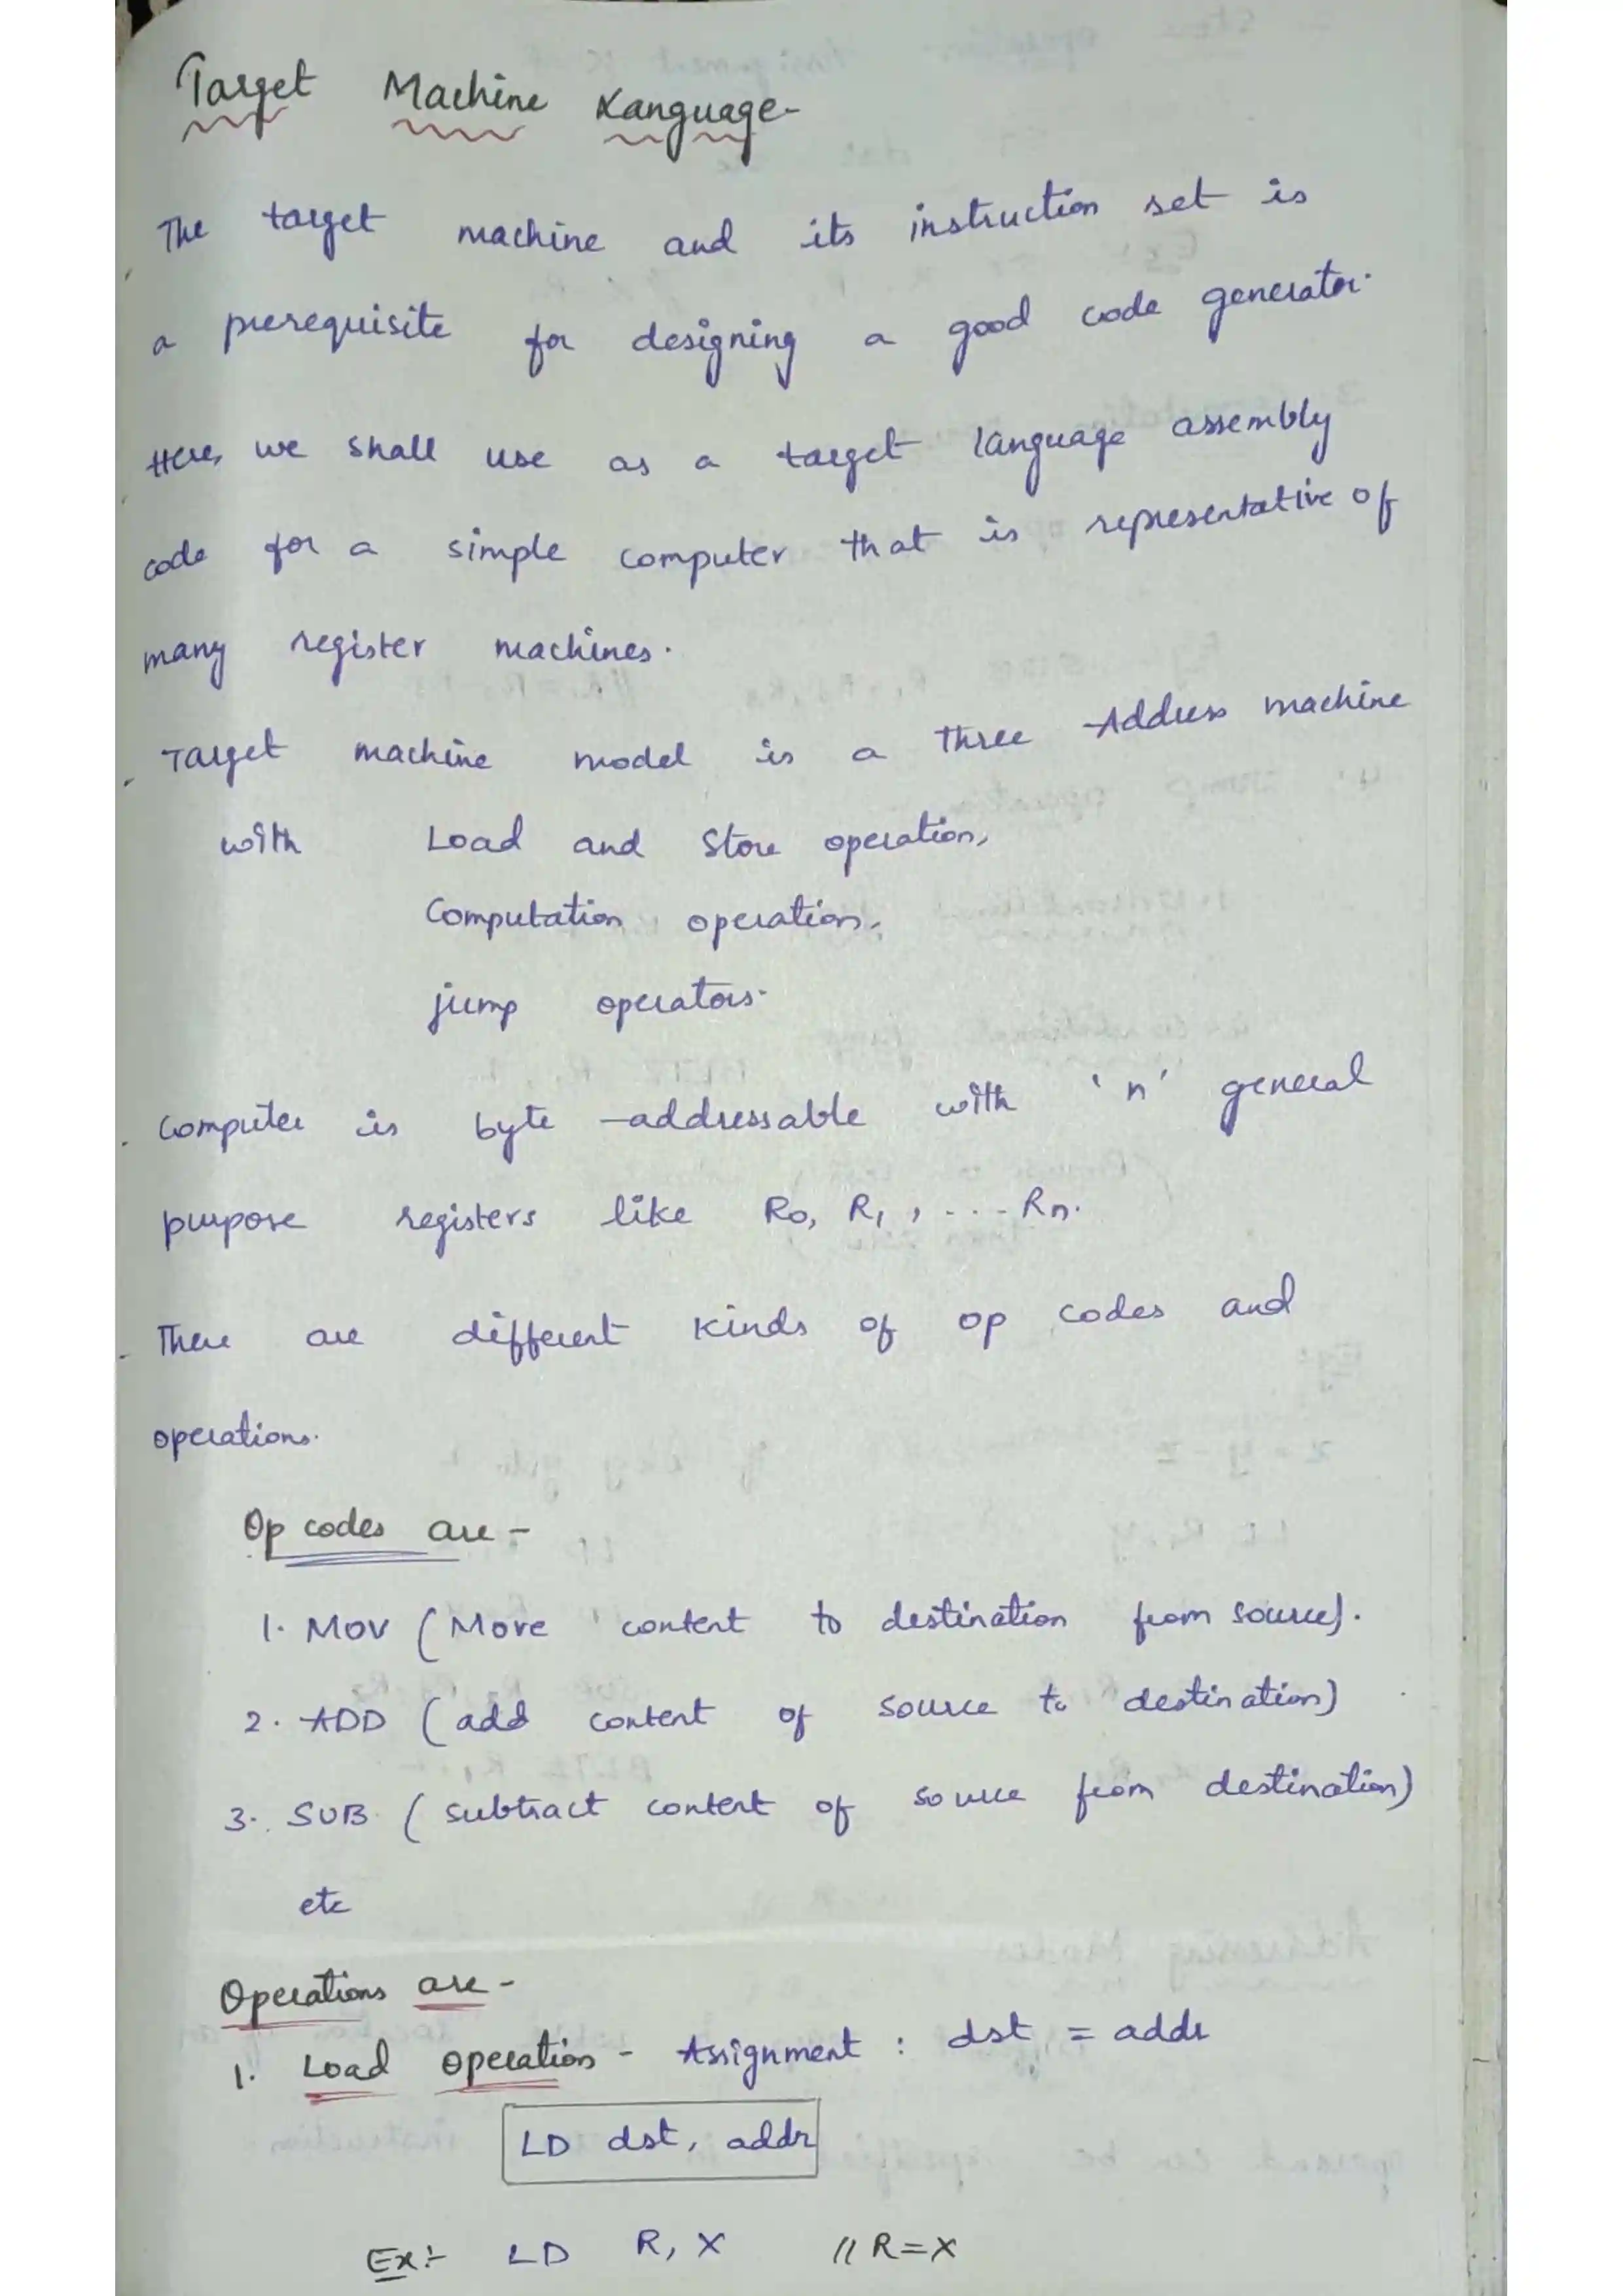 Target Machine Language-
The target machine and its instruction set is
a prerequisite for designing a good code generator.
Here, we shall use as a target language assembly
code for a simple computer that is representative of
many register machines.
Target machine model is a three -Address machine
with Load and Store operation,
Computation operation,
jump operators.
Computer is byte -addressable with 'n' general
purpose registers like R0, R1, ... Rn.
There are different kinds of op codes and
operations.
Op codes are -
1. MOV (Move content to destination from source).
2. ADD (add content of source to destination)
3. SUB (subtract content of source from destination)
etc
Operations are -
1. Load operation - Assignment : dst = addr
LD dst, addr
Ex:- LD R, X // R=X